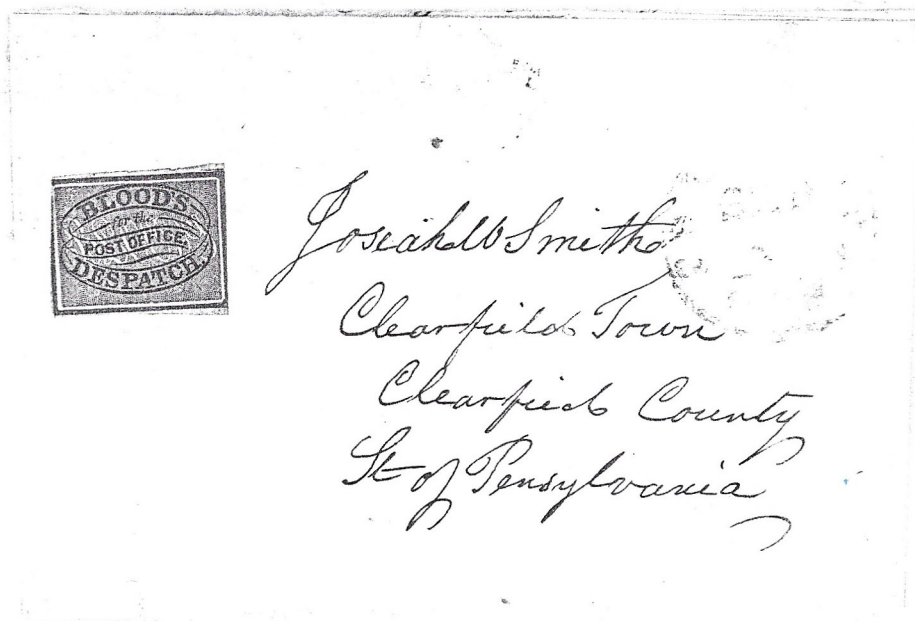 BLOOD'S
for the
POST OFFICE
DESPATCH.
Josiah W Smith
Clearfield Town
Clearfield County
St of Pensylvania